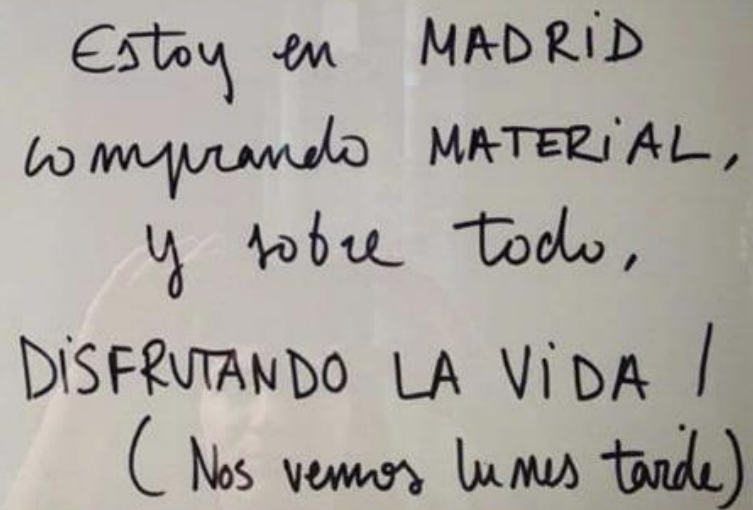 Estoy en MADRID
comprando MATERIAL,
y sobre todo,
DISFRUTANDO LA VIDA !
( Nos vemos lunes tarde)